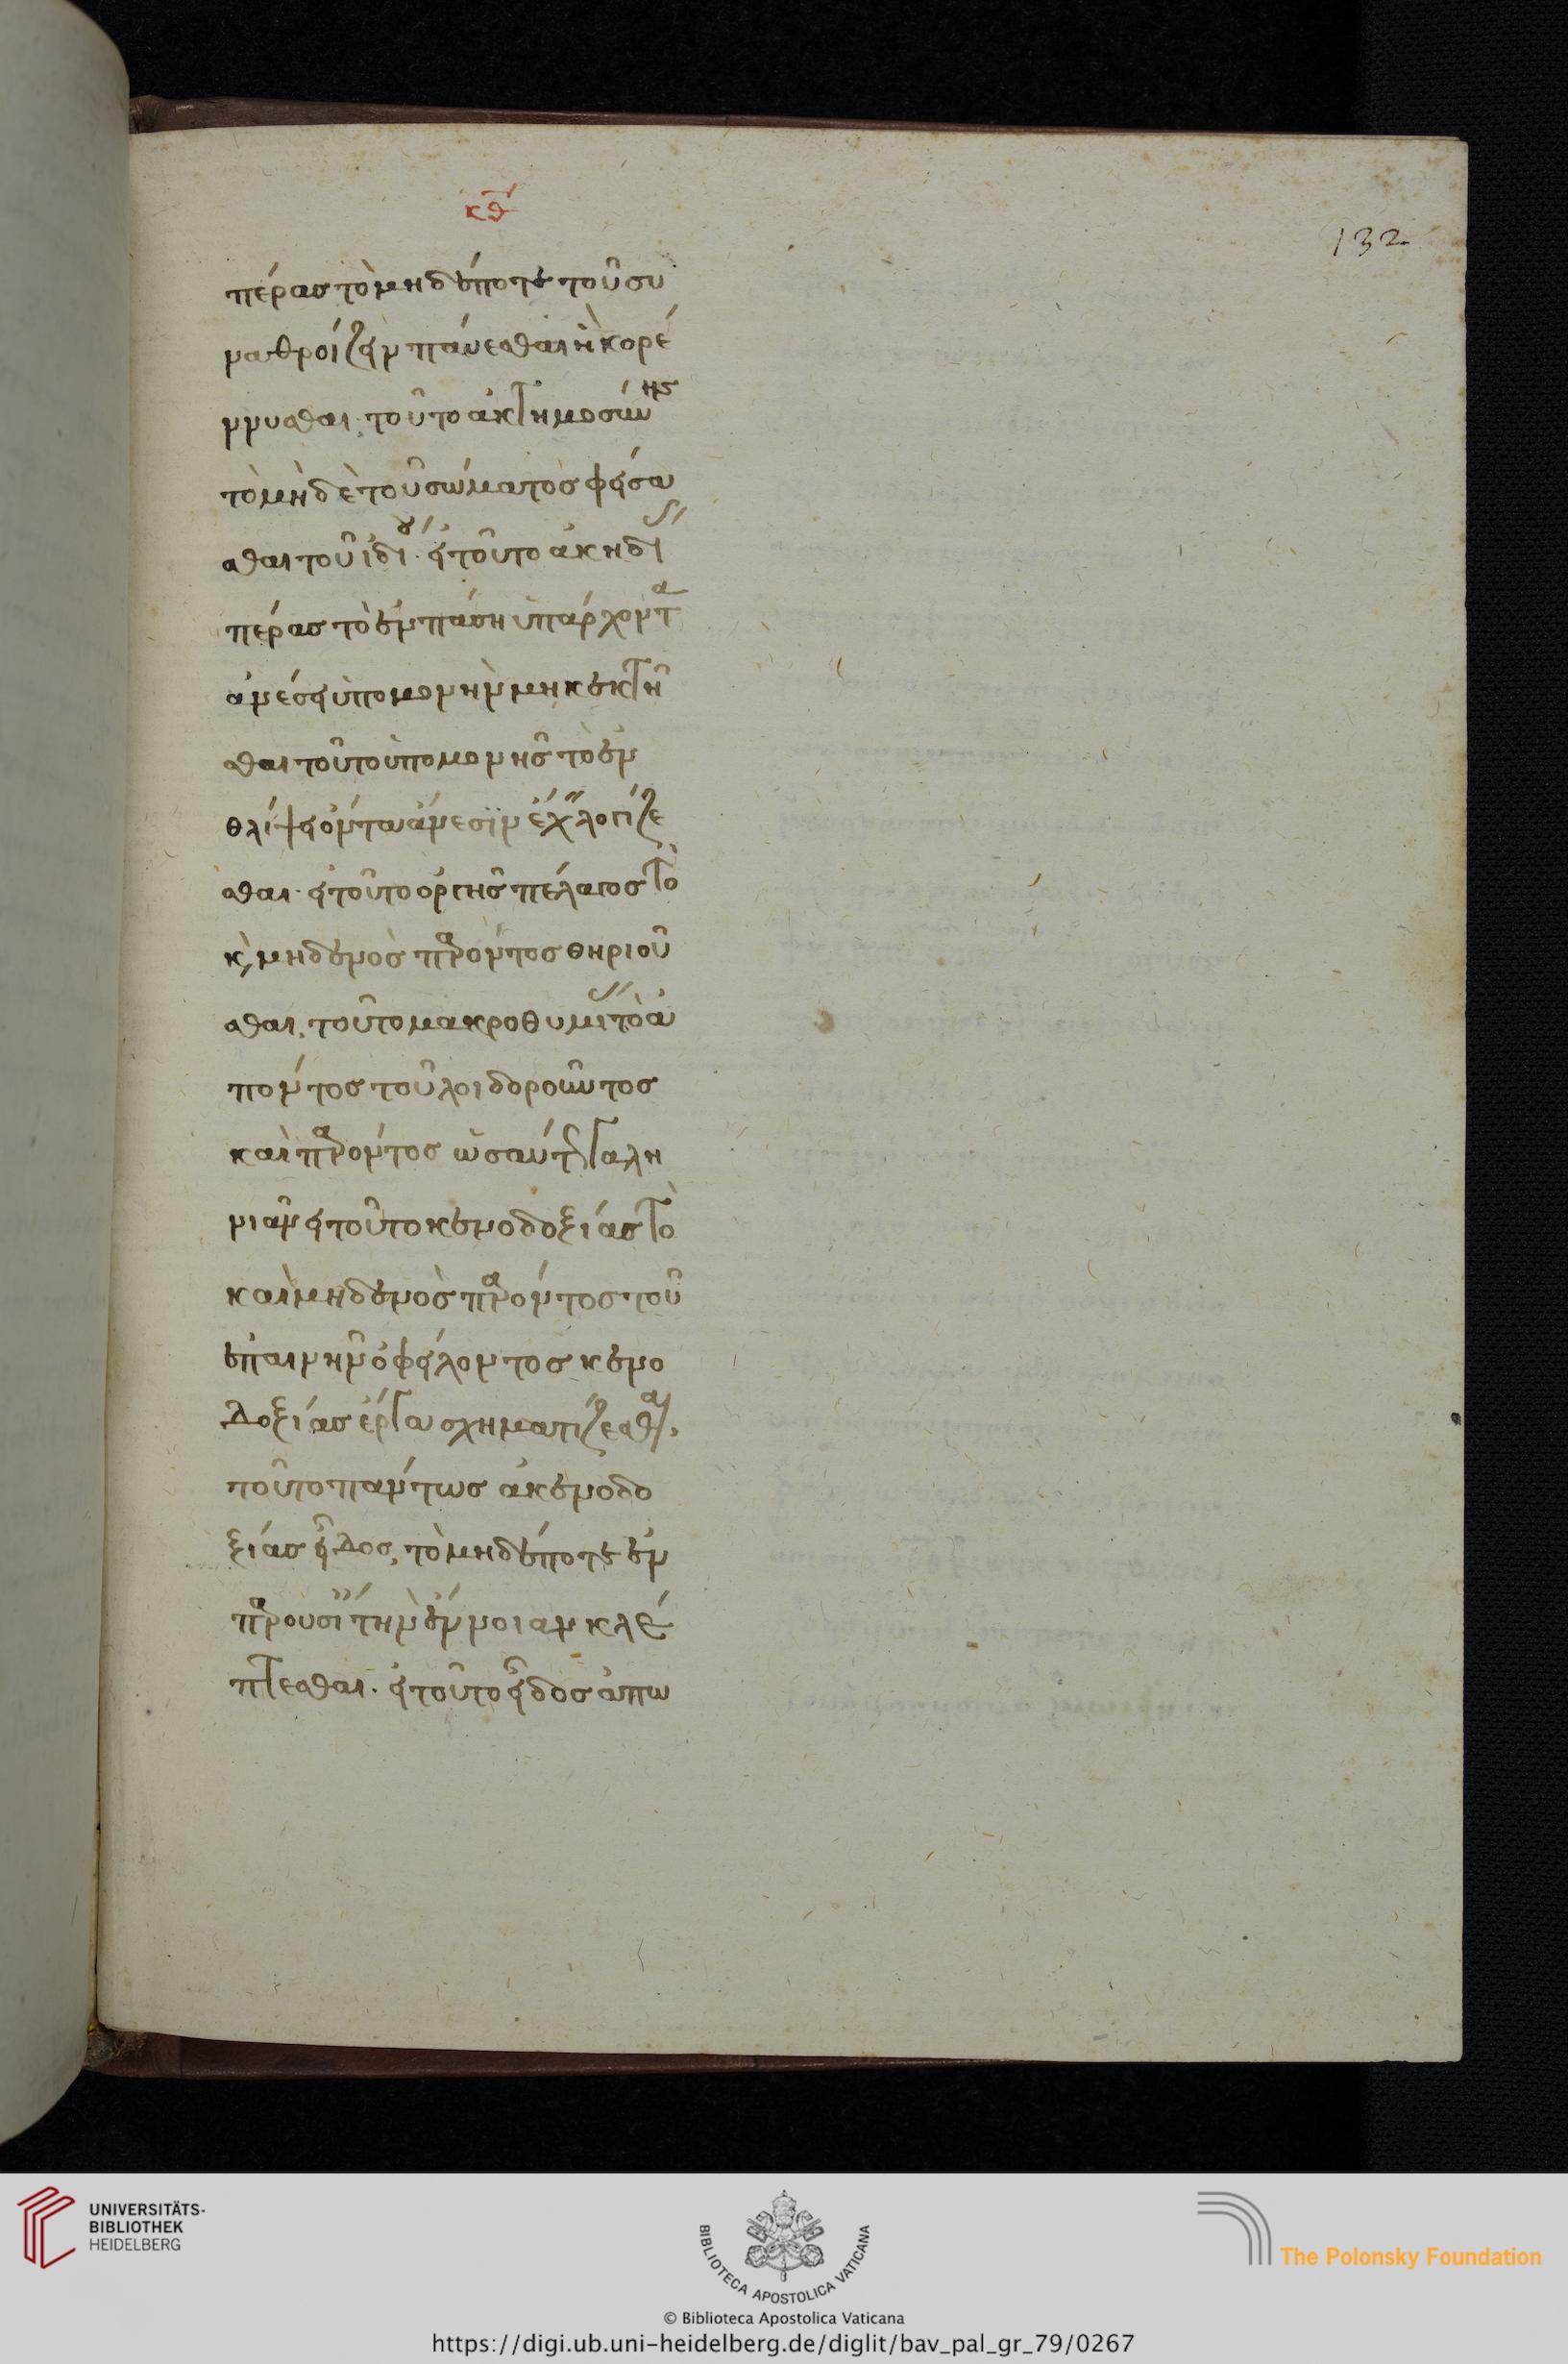 κθ
132
πέρας τὸ μηδέποτε τοῦ συ
ναθροίζειν παύεσθαι ἢ κορέ
ννυσθαι, τοῦτο ἀκτημοσύνης
τὸ μὴ δὲ τοῦ σώματος φείσα
σθαι τοῦ ἰδίου. εἰ τοῦτο ἀκηδί
πέρας τὸ ἐν πάση ὑπάρχοντα
ἀνέσει ὑπομονὴν μὴ κεκτῆ
σθαι τοῦτο ὑπομονῆς τὸ ἐν
θλίψει ὄντα ἄνεσιν ἔχειν λογίζε
σθαι. εἰ τοῦτο ὀργῆς πέλαγος τὸ
καὶ μηδενὸς παρόντος θηριοῦ
σθαι, τοῦτο μακροθυμί τὸ ἀ
πόντος τοῦ λοιδοροῦντος
καὶ παρόντος ὡσαύτως γαλη
νιᾶν εἰ τοῦτο κενοδοξίας τὸ
καὶ μηδενὸς παρόντος τοῦ
ἐπαινεῖν ὀφείλοντος κενο
δοξίας ἔργα σχηματίζεσθαι,
τοῦτο πάντως ἀκενοδο
ξίας εἶδος, τὸ μηδέποτε ἐν
παρουσί τὴν ἔννοιαν κλέ
πτεσθαι. εἰ τοῦτο εἶδος ἀπω
UNIVERSITÄTS-
BIBLIOTHEK
HEIDELBERG
BIBLIOTECA APOSTOLICA VATICANA
The Polonsky Foundation
© Biblioteca Apostolica Vaticana
https://digi.ub.uni-heidelberg.de/diglit/bav_pal_gr_79/0267